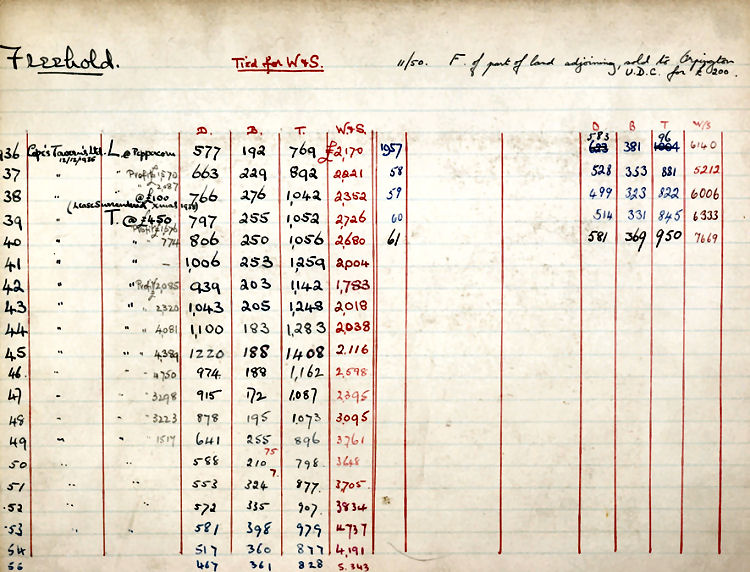 Freehold. Tied for W&S. 11/50. F. of part of land adjoining, sold to Orpington
U.D.C. for £200.
D. B. T. W&S. D B T W/S
583 96
936 Cope's Taverns Ltd. L. @ Peppercorn 577 192 769 £2,170 1957 623 381 1004 6140
12/12/1935
37 " " Profit 1,570 663 229 892 2,221 58 528 353 881 5212
" 2,087
38 " @ £100 766 276 1,042 2352 59 499 323 822 6006
(Lease Surrendered, Xmas 1938)
39 " T. @ £450 797 255 1,052 2,726 60 514 331 845 6333
Profit 1676
40 " " 774 806 250 1,056 2,680 61 581 369 950 7669
41 " " - 1,006 253 1,259 2,004
42 " " Profit 2,085 939 203 1,142 1,783
43 " " " 2320 1,043 205 1,248 2,018
44 " " " 4081 1,100 183 1,283 2,038
45 " " " 4,389 1220 188 1408 2,116
46. " " " 4750 974 188 1,162 2,598
47 " " " 3298 915 172 1,087 2,395
48 " " " 3223 878 195 1,073 3,095
49 " " 1517 641 255 896 3,761
75
50 " " 588 210 798 3648
7.
51 " " 553 324 877 3,705
52 " " 572 335 907 3834
53 " " 581 398 979 4737
54 517 360 877 4,191
467 361 828 5,343